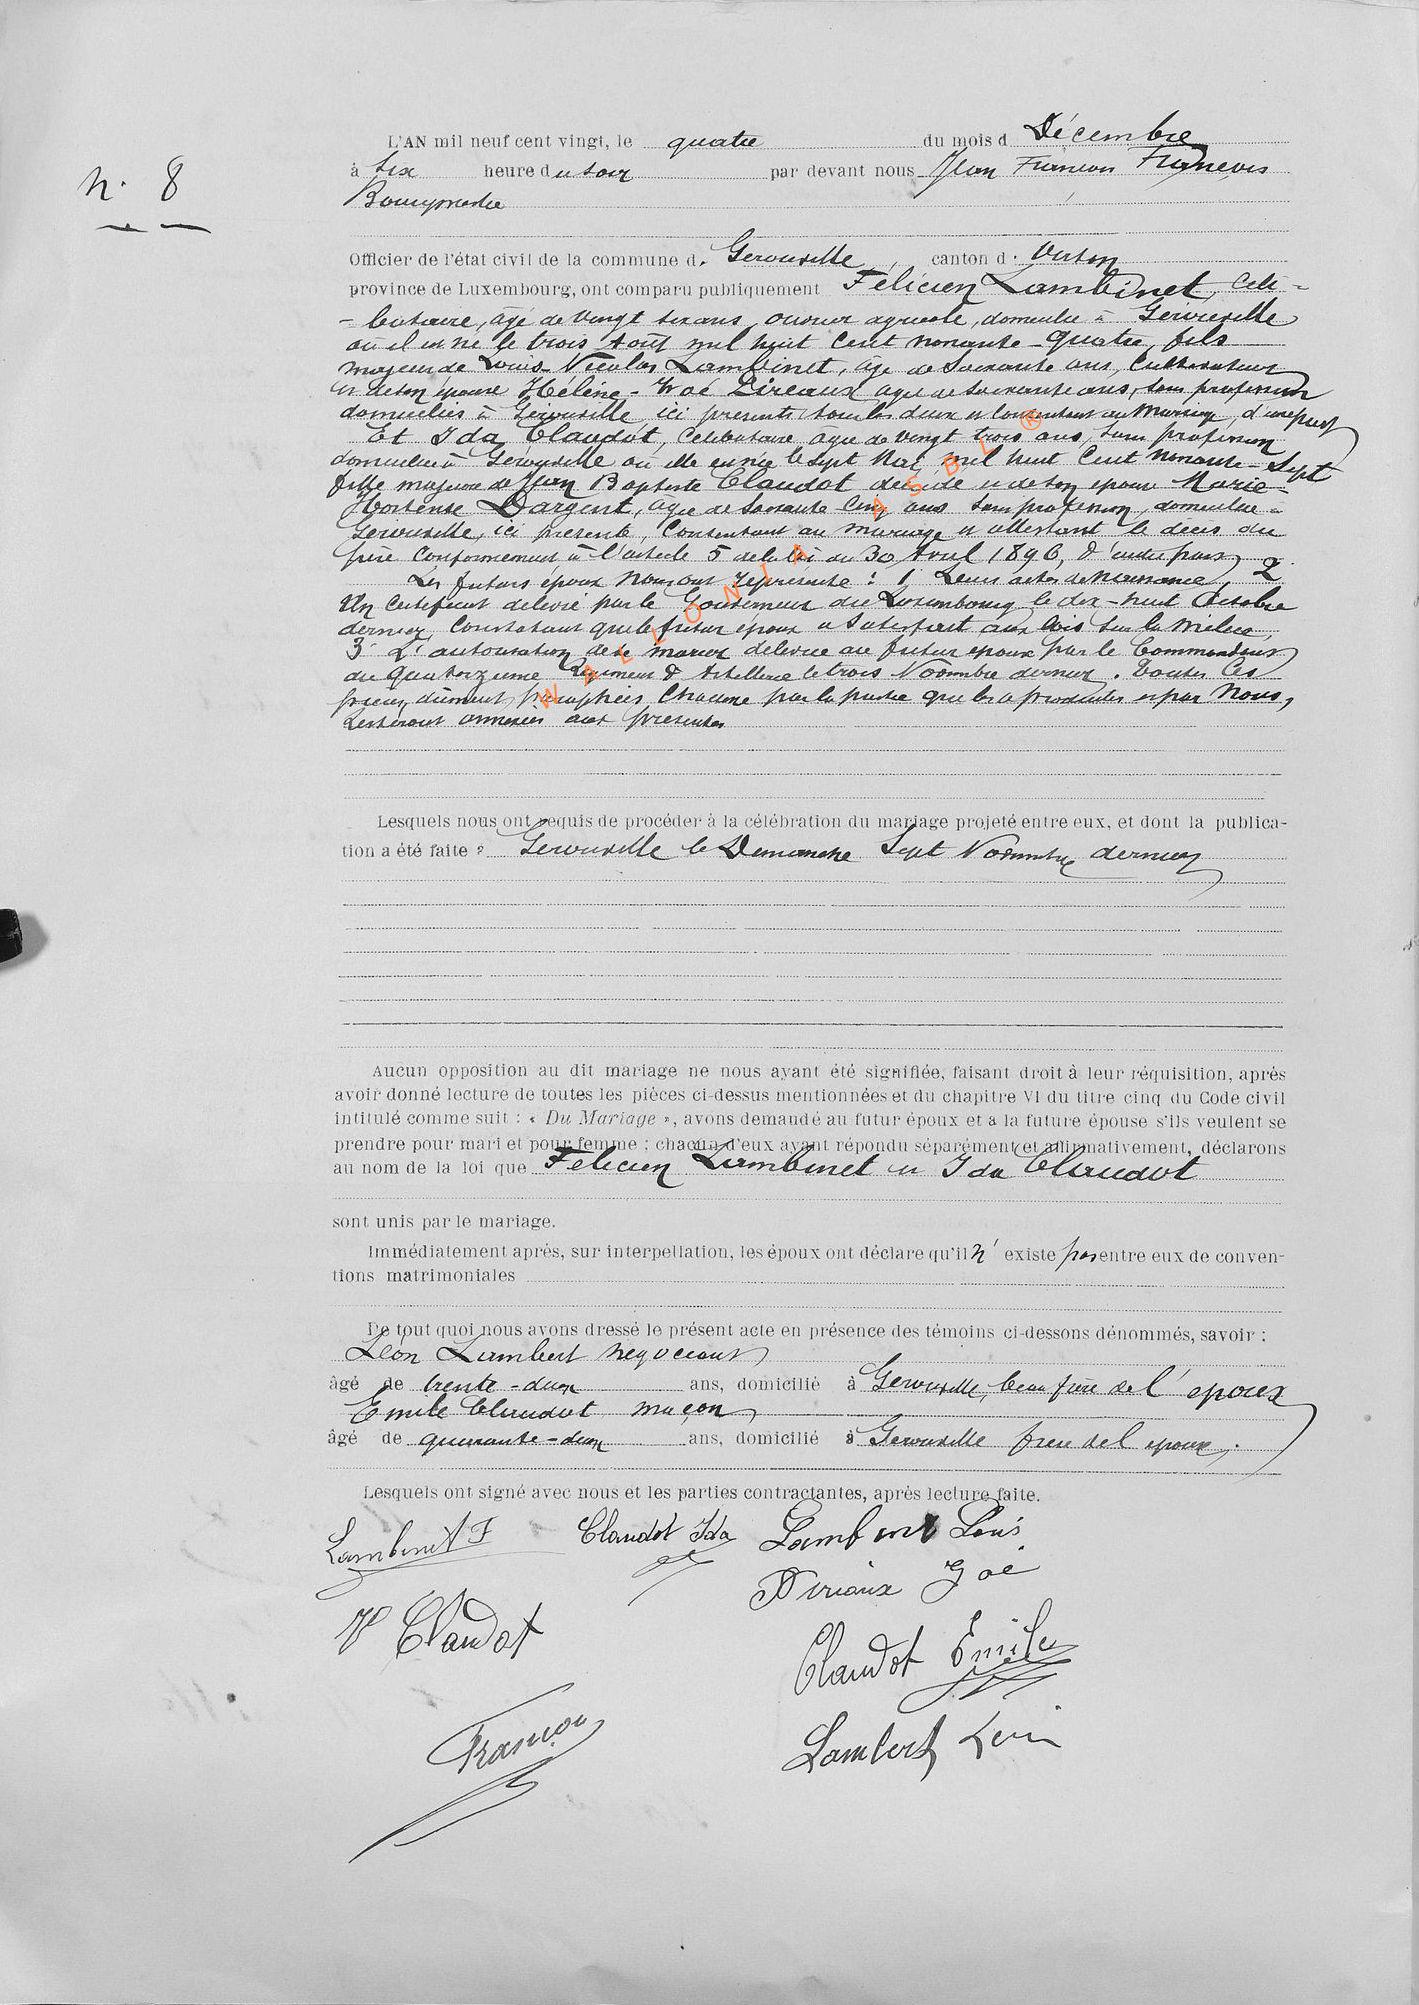 N. 8
L'AN mil neuf cent vingt, le quatre du mois d Décembre
à six heure du soir par devant nous Jean François
Bourgmestre
Officier de l'état civil de la commune d. Gerouville, canton d. Virton
province de Luxembourg, ont comparu publiquement Félicien Lambinet, Céli-
-bataire, agé de Vingt six ans, ouvrier agricole, domicilié à Gérouville
où il est né le trois Août mil huit Cent nonante-quatre, fils
majeur de Louis-Nicolas Lambinet, âgé de Soixante ans, Cultivateur
et de son épouse Hélène-Zoé Diréaux agée de soixante ans, sans profession
domiciliés à Gérouville, ici présents tous les deux et consentant au Mariage, d'une part
Et Ida Claudot, Célibataire âgée de vingt trois ans, sans profession
domiciliée à Gérouville où elle est née le sept Mai mil huit Cent Nonante-Sept
fille majeure de Jean Baptiste Claudot décédé et de son épouse Marie-
Hortense Dargent, âgée de Soixante Cinq ans sans profession, domiciliée à
Gerouville, ici présente, Consentant au mariage et attestant le décès du
père Conformément à l'article 5 de la loi du 30 Avril 1896, d'autre part
Les futurs époux Nous ont représenté : 1 Leurs actes de Naissance, 2
Un Certificat délivré par le Gouverneur du Luxembourg le dix-huit Octobre
dernier, Constatant que le futur époux a Satisfait aux lois sur la Milice,
3° L'autorisation de se marier délivrée au futur époux par le Commandant
du quatorzième Régiment d'Artillerie le trois Novembre dernier. Toutes Ces
pièces, dûment paraphées Chacune par la partie qui les a produites et par Nous,
resteront annexées aux présentes
WALLONIA ASBL ®
Lesquels nous ont requis de procéder à la célébration du mariage projeté entre eux, et dont la publica-
tion a été faite à Gerouville le Dimanche Sept Novembre dernier
Aucun opposition au dit mariage ne nous ayant été signifiée, faisant droit à leur réquisition, après
avoir donné lecture de toutes les pièces ci-dessus mentionnées et du chapitre VI du titre cinq du Code civil
intitulé comme suit : « Du Mariage », avons demandé au futur époux et a la future épouse s'ils veulent se
prendre pour mari et pour femme ; chacun d'eux ayant répondu séparément et affirmativement, déclarons
au nom de la loi que Félicien Lambinet et Ida Claudot
sont unis par le mariage.
Immédiatement après, sur interpellation, les époux ont déclare qu'il n' existe pas entre eux de conven-
tions matrimoniales
De tout quoi nous avons dressé le présent acte en présence des témoins ci-dessons dénommés, savoir :
Léon Lambert négociant
âgé de trente-deux ans, domicilié à Gerouville, beau frère de l'époux
Emile Claudot maçon
âgé de quarante-deux ans, domicilié à Gerouville frère de l'épouse.
Lesquels ont signé avec nous et les parties contractantes, après lecture faite.
Lambinet F Claudot Ida Lambinet Louis
Diriaux Zoé
Ve Claudot
Claudot Emile
François
Lambert Léon